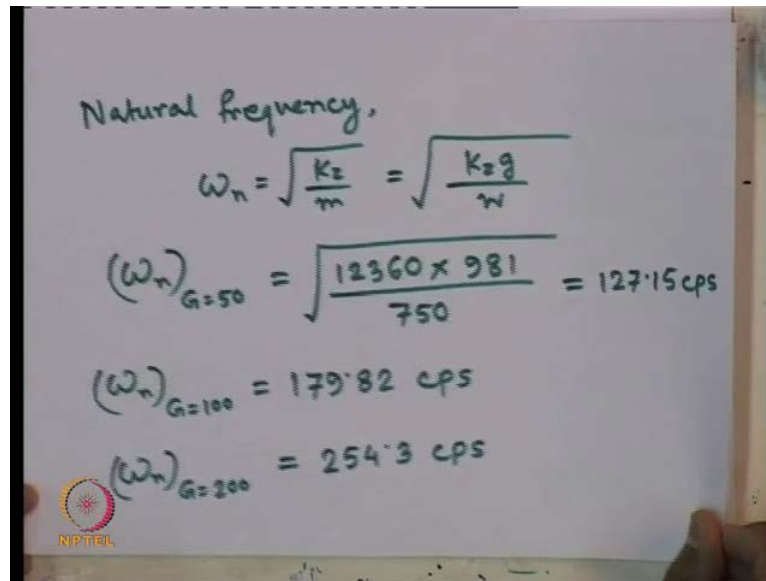 Natural frequency,
ωn = √(Kz/m) = √(Kz g/W)
(ωn)G=50 = √(12360 × 981/750) = 127.15 cps
(ωn)G=100 = 179.82 cps
(ωn)G=200 = 254.3 cps
NPTEL